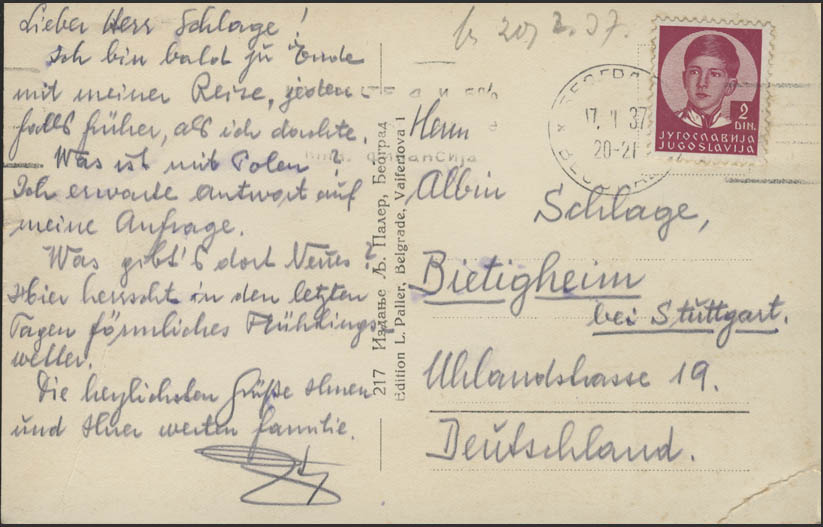 Lieber Herr Schlage!
Ich bin bald zu Ende
mit meiner Reise, jeden-
falls früher, als ich dachte.
Was ist mit Polen?
Ich erwarte Antwort auf
meine Anfrage.
Was gibt's dort Neues?
Hier herrscht in den letzten
Tagen förmliches Frühlings-
wetter.
Die herzlichsten Grüße Ihnen
und Ihrer werten Familie.
217 Издање Љ. Палер, Београд
Edition L. Palier, Belgrade, Vajfertova 1
20/2.37.
БЕОГРАД
17. 37
20-21
BEOGRAD
2
DIN.
ЈУГОСЛАВИЈА
JUGOSLAVIJA
Herrn
Albin
Schlage,
Bietigheim
bei Stuttgart.
Uhlandstrasse 19.
Deutschland.